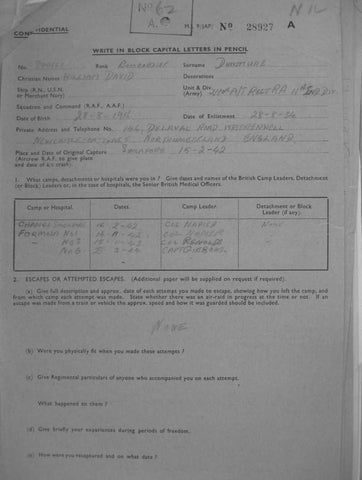 No 62
A.
N 12
CONFIDENTIAL
M.I. 9/JAP/ No 28927 A
WRITE IN BLOCK CAPITAL LETTERS IN PENCIL
No. Rank BOMBARDIER Surname
Christian Names WILLIAM DAVID Decorations
Ship (R.N., U.S.N. or Merchant Navy) Unit & Div. (Army)
Squadron and Command (R.A.F., A.A.F.)
Date of Birth 28-8-1916 Date of Enlistment 28-8-34
Private Address and Telephone No. 162, DELAVAL ROAD
NEWCASTLE-ON-TYNE NORTHUMBERLAND ENGLAND
Place and Date of Original Capture SINGAPORE 15-2-42
(Aircrew R.A.F. to give place
and date of a/c crash).
1. What camps, detachments or hospitals were you in ? Give dates and names of the British Camp Leaders, Detachment
(or Block) Leaders or, in the case of hospitals, the Senior British Medical Officers.
Camp or Hospital. Dates. Camp Leader. Detachment or Block Leader (if any).
CHANGI SINGAPORE COL NAPIER NONE
FORMOSA No1 COL NAPIER
No3
No6
2. ESCAPES OR ATTEMPTED ESCAPES. (Additional paper will be supplied on request if required).
(a) Give full description and approx. date of each attempt you made to escape, showing how you left the camp, and
from which camp each attempt was made. State whether there was an air-raid in progress at the time or not. If an
escape was made from a train or vehicle the approx. speed and how it was guarded should be included.
NONE
(b) Were you physically fit when you made these attempts ?
(c) Give Regimental particulars of anyone who accompanied you on each attempt.
What happened to them ?
(d) Give briefly your experiences during periods of freedom.
(e) How were you recaptured and on what date ?